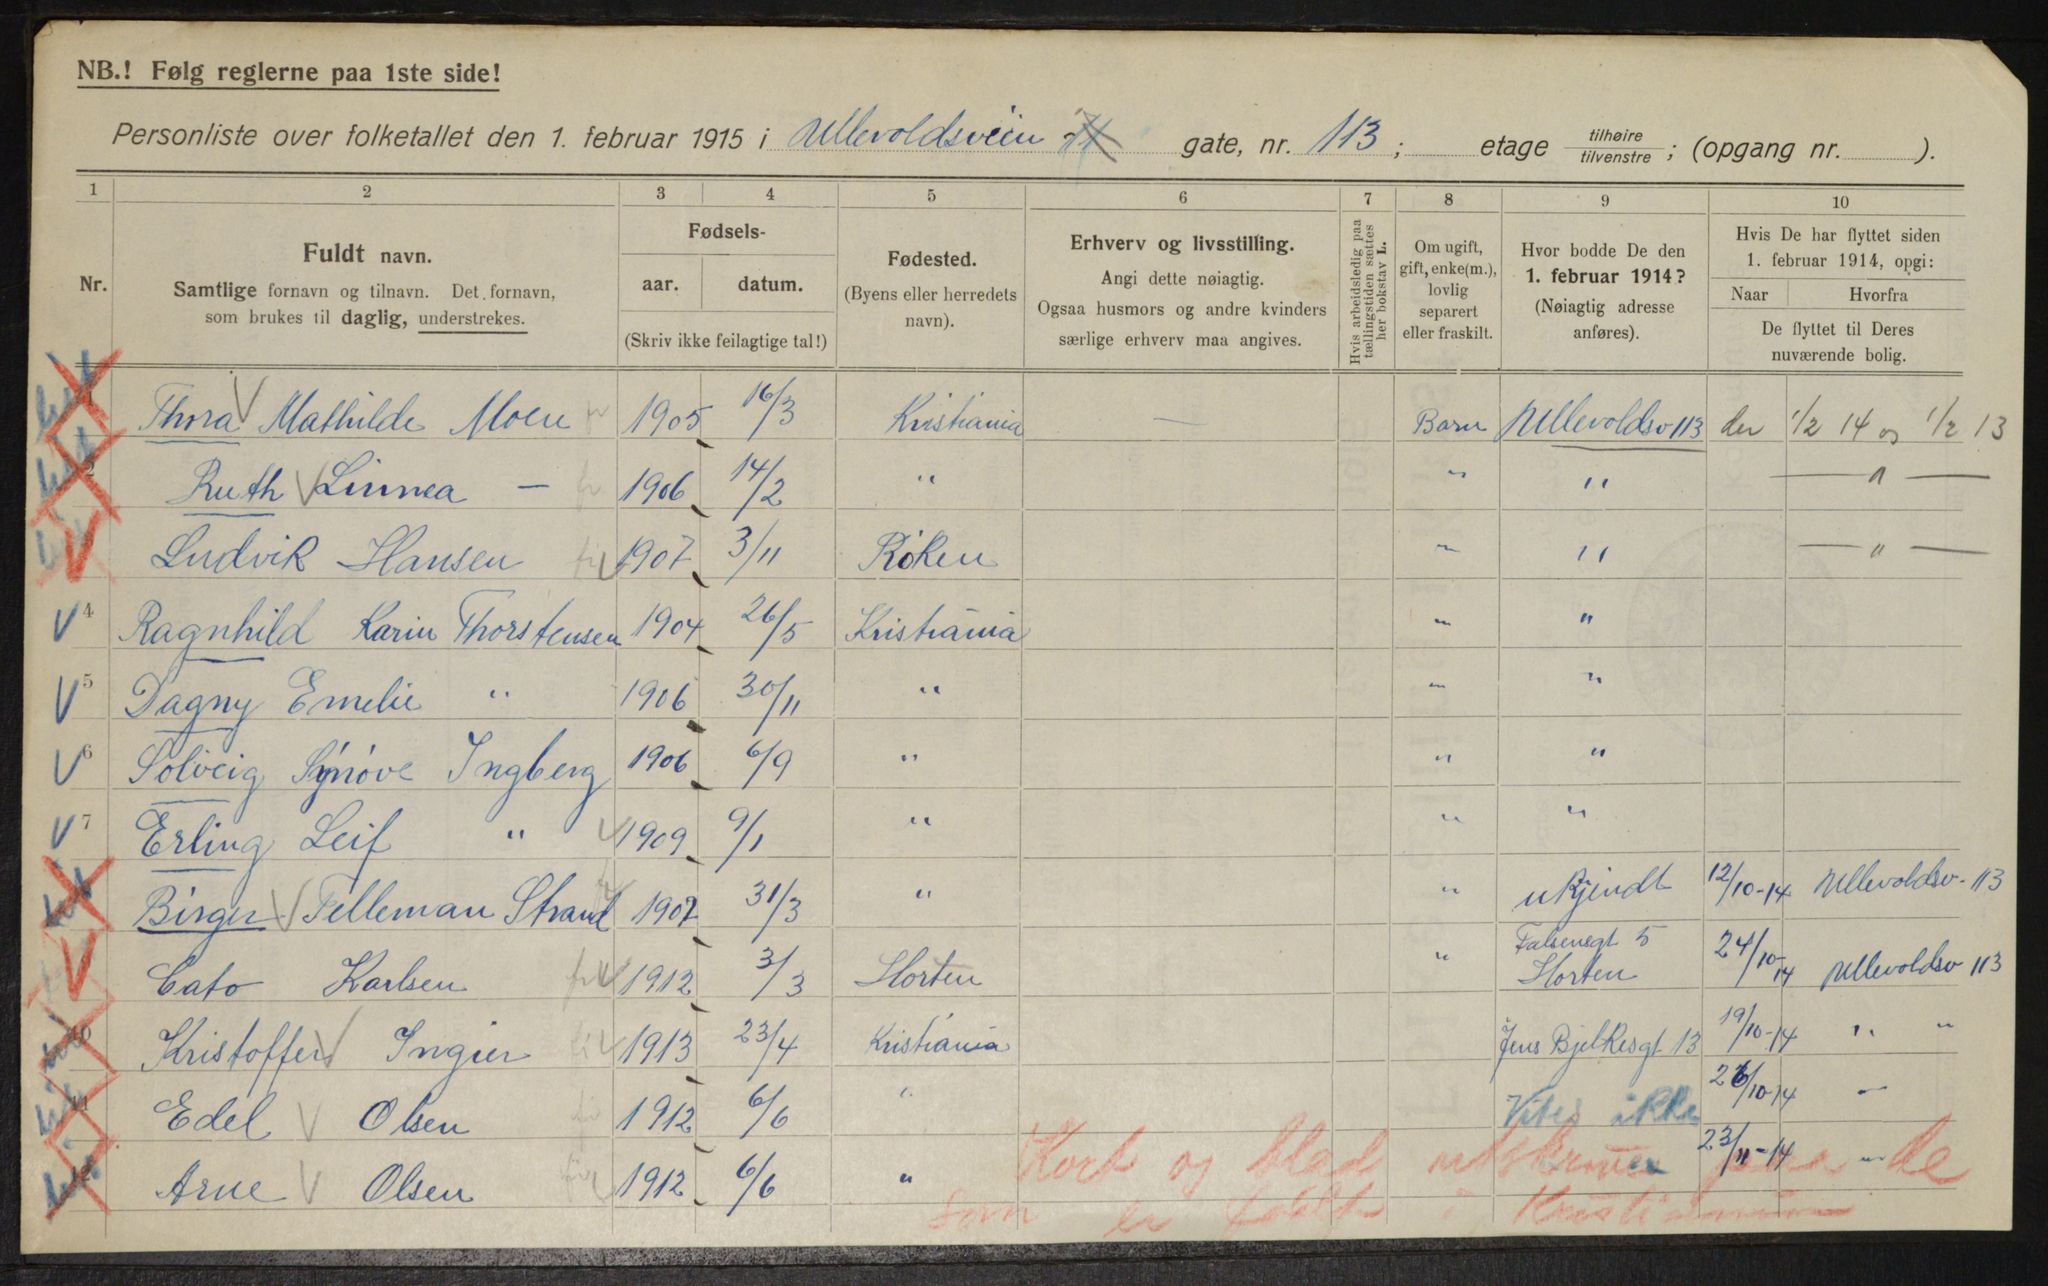 NB.! Følg reglerne paa 1ste side!
Personliste over folketallet den 1. februar 1915 i Ullevoldsveien gate, nr. 113; etage tilhøire / tilvenstre; (opgang nr. ).
1 2 3 4 5 6 7 8 9 10
Nr.
Fuldt navn.
Samtlige fornavn og tilnavn. Det fornavn,
som brukes til daglig, understrekes.
Fødsels-
aar. datum.
(Skriv ikke feilagtige tal!)
Fødested.
(Byens eller herredets
navn).
Erhverv og livsstilling.
Angi dette nøiagtig.
Ogsaa husmors og andre kvinders
særlige erhverv maa angives.
Hvis arbeidsledig paa
tællingstiden sættes
her bokstav L.
Om ugift,
gift, enke(m.),
lovlig
separert
eller fraskilt.
Hvor bodde De den
1. februar 1914?
(Nøiagtig adresse
anføres).
Hvis De har flyttet siden
1. februar 1914, opgi:
Naar Hvorfra
De flyttet til Deres
nuværende bolig.
1 Thora Mathilde Moen 1905 16/3 Kristiania — Barn Ullevoldsv 113 der 1/2 14 og 1/2 13
2 Ruth Linnea — 1906 14/2 " " " — " —
Ludvik Hansen 1907 3/11 Røken " " — " —
4 Ragnhild Karin Thorstensen 1904 26/5 Kristiania " "
5 Dagny Emelie " 1906 30/11 " " "
6 Solveig Synøve Ingberg 1906 6/9 " " "
7 Erling Leif " 1909 9/1 " " "
Birger Felleman Strand 1907 31/3 " " ukjendt 12/10-14 Ullevoldsv. 113
9 Cato Karlsen 1912 3/3 Horten " Falsensgt 5 Horten 24/10-14 Ullevoldsv 113
10 Kristoffer Ingier 1913 23/4 Kristiania Jens Bjelkesgt 13 19/10-14 " "
11 Edel Olsen 1912 6/6 " Vites ikke 26/10-14 "
12 Arne Olsen 1912 6/6 " 23/11-14 "
Kort og blad utskrevet paa de
som er født i Kristiania